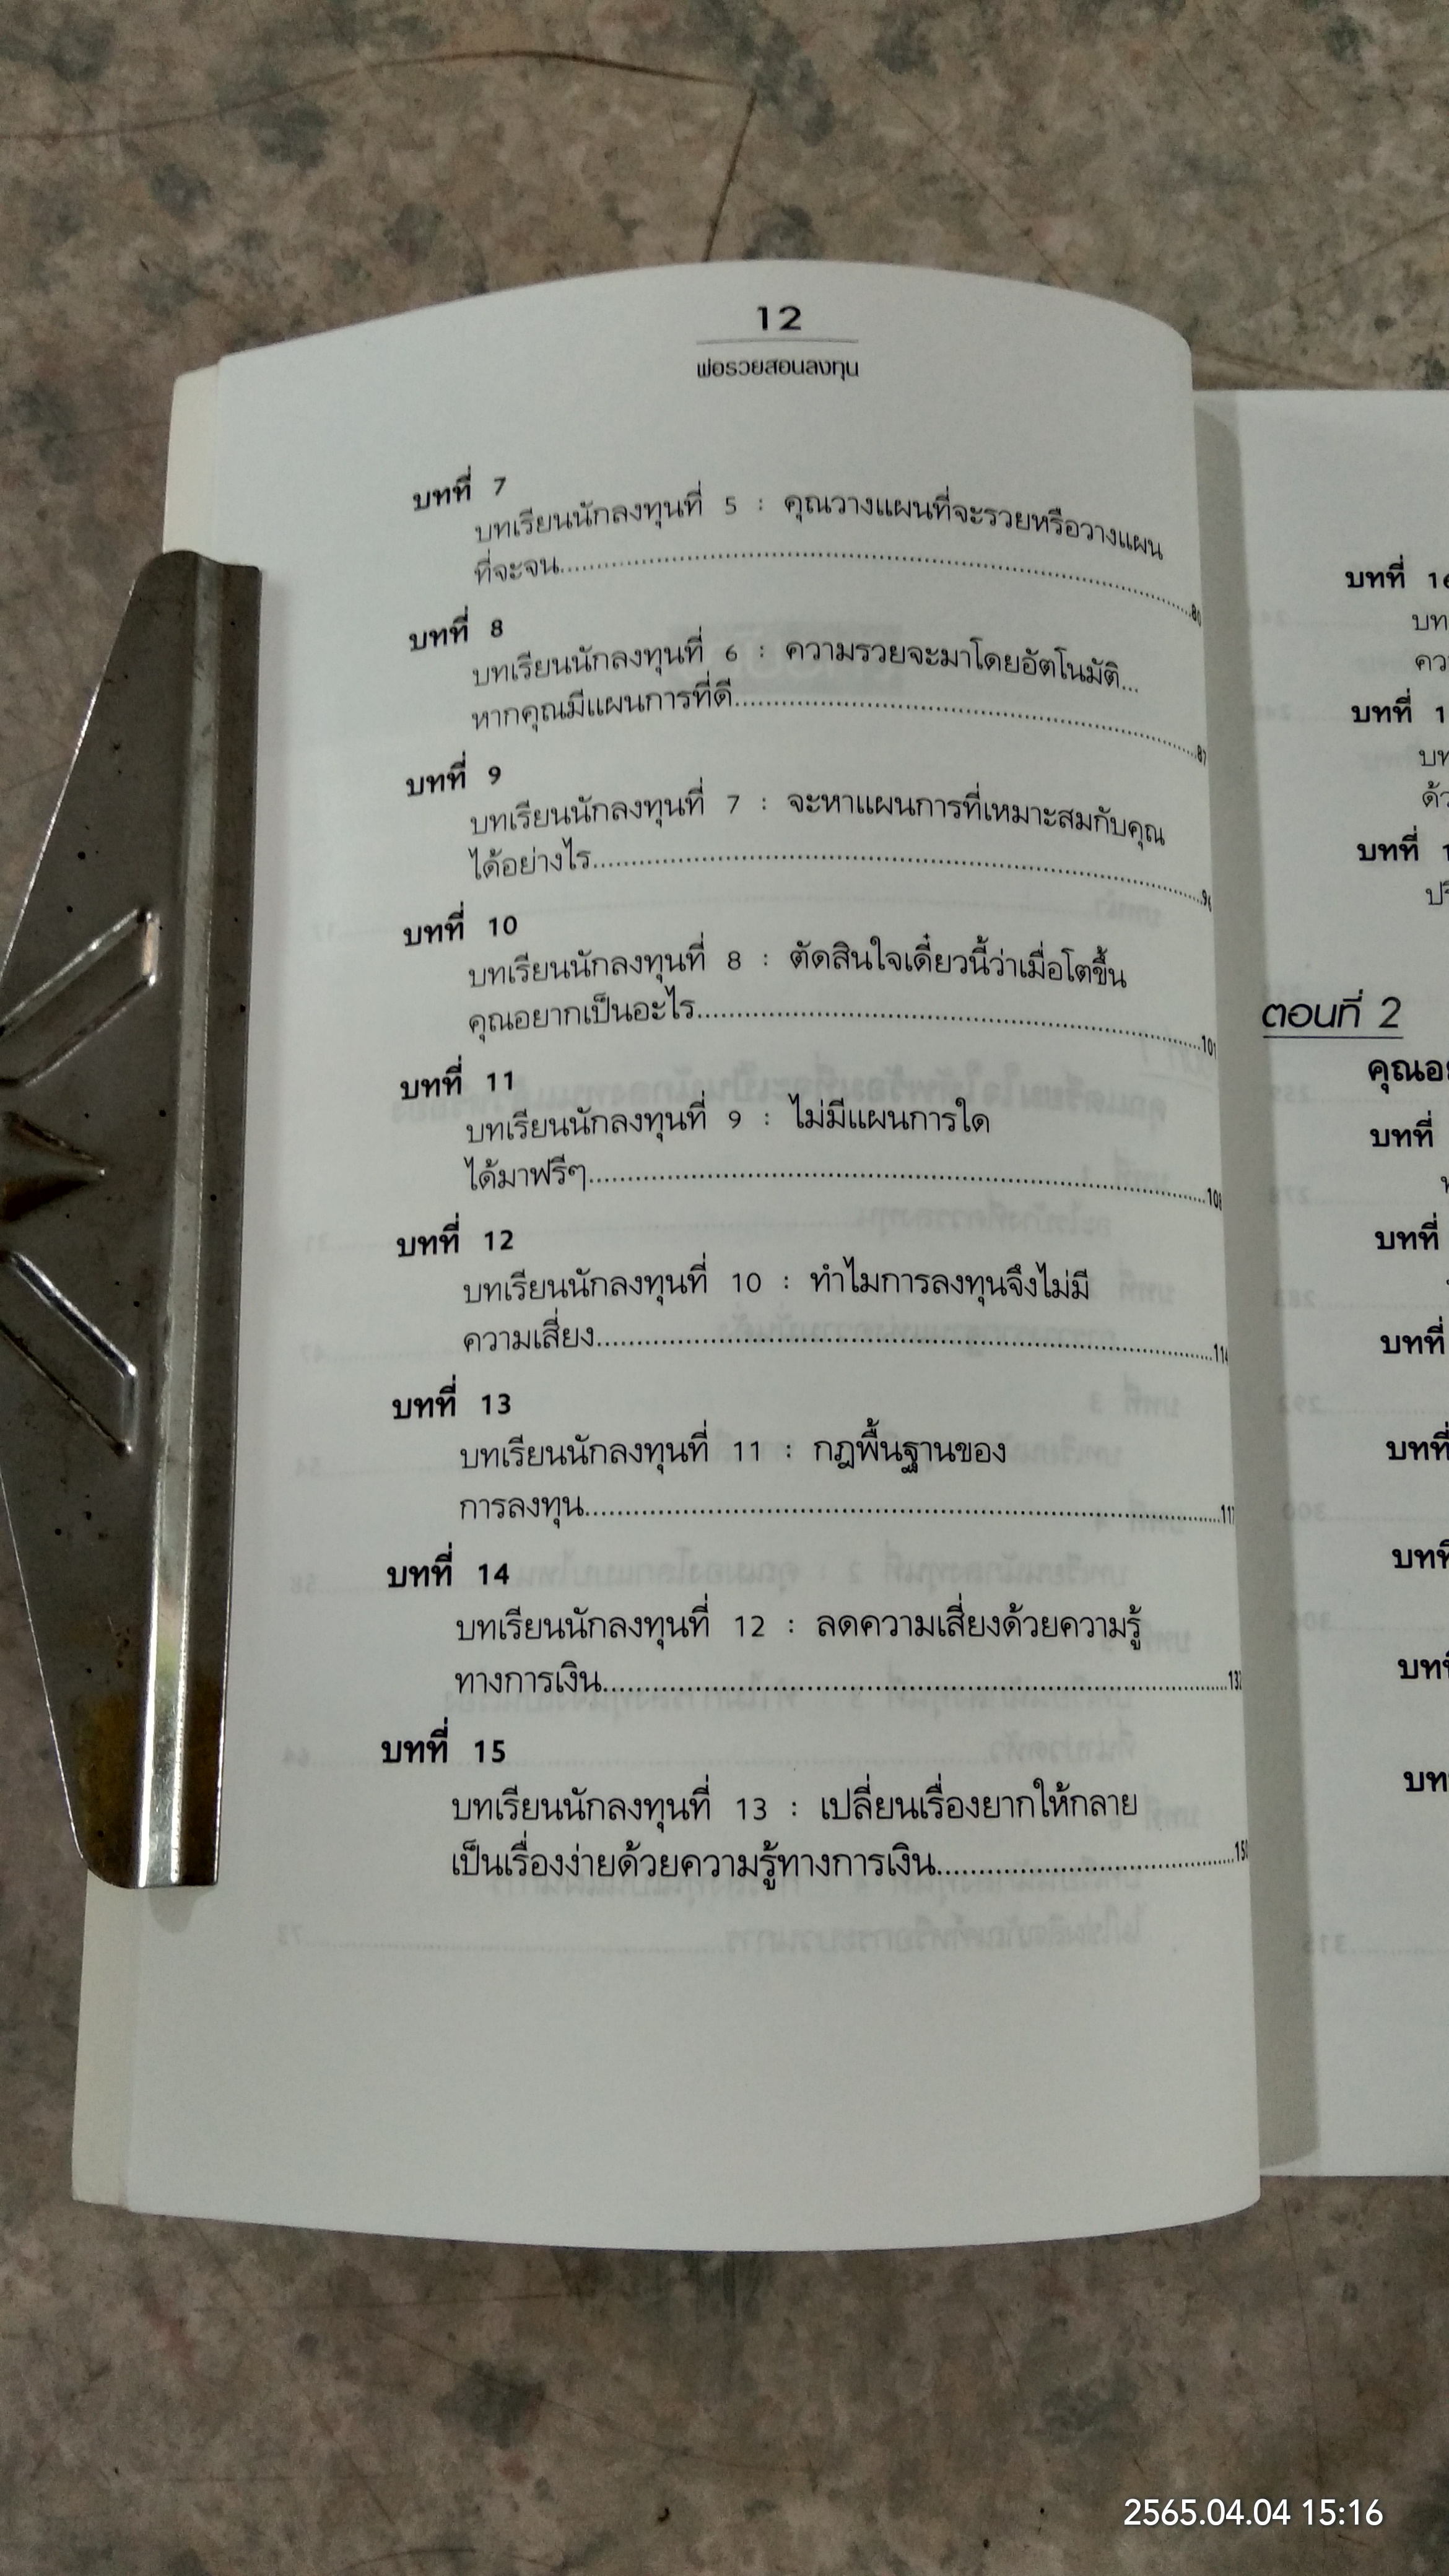 12
พ่อรวยสอนลงทุน
บทที่ 7
บทเรียนนักลงทุนที่ 5 : คุณวางแผนที่จะรวยหรือวางแผน
ที่จะจน..........80
บทที่ 8
บทเรียนนักลงทุนที่ 6 : ความรวยจะมาโดยอัตโนมัติ...
หากคุณมีแผนการที่ดี..........87
บทที่ 9
บทเรียนนักลงทุนที่ 7 : จะหาแผนการที่เหมาะสมกับคุณ
ได้อย่างไร..........
บทที่ 10
บทเรียนนักลงทุนที่ 8 : ตัดสินใจเดี๋ยวนี้ว่าเมื่อโตขึ้น
คุณอยากเป็นอะไร..........101
บทที่ 11
บทเรียนนักลงทุนที่ 9 : ไม่มีแผนการใด
ได้มาฟรีๆ..........
บทที่ 12
บทเรียนนักลงทุนที่ 10 : ทำไมการลงทุนจึงไม่มี
ความเสี่ยง..........114
บทที่ 13
บทเรียนนักลงทุนที่ 11 : กฎพื้นฐานของ
การลงทุน..........117
บทที่ 14
บทเรียนนักลงทุนที่ 12 : ลดความเสี่ยงด้วยความรู้
ทางการเงิน..........132
บทที่ 15
บทเรียนนักลงทุนที่ 13 : เปลี่ยนเรื่องยากให้กลาย
เป็นเรื่องง่ายด้วยความรู้ทางการเงิน..........150
บทที่
บทที่
บทที่
ตอนที่ 2
บทที่
บทที่
บทที่
2565.04.04 15:16